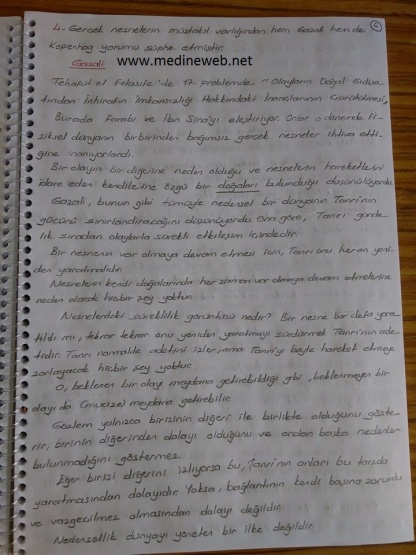 6
4- Gerçek nesnelerin müstakil varlığından hem Gazali hem de
Kopenhag yorumu şüphe etmiştir.
Gazali: www.medineweb.net
Tehafüt el Felasife'de 17. problemde "Olayların Doğal Gidişa-
tından İnhirafın İmkansızlığı Hakkındaki İnançlarının Çürütülmesi,
Burada Farabi ve İbn Sina'yı eleştiriyor. Onlar o dönemde fi-
ziksel dünyanın birbirinden bağımsız gerçek nesneler ihtiva etti-
ğine inanıyorlardı.
Bir olayın bir diğerine neden olduğu ve nesnelerin hareketlerini
idare eden kendilerine özgü bir doğaları bulunduğu düşünülüyordu.
Gazali, bunun gibi tümüyle nedensel bir dünyanın Tanrı'nın
gücünü sınırlandıracağını düşünüyordu. Ona göre, Tanrı günde-
lik sıradan olaylarla sürekli etkileşim içindedir.
Bir nesnenin var olmaya devam etmesi için, Tanrı onu her an yeni-
den yaratmalıdır.
Nesnelerin kendi doğalarında her zaman var olmaya devam etmelerine
neden olacak hiçbir şey yoktur.
Nesnelerdeki süreklilik görüntüsü nedir? Bir nesne bir defa yara-
tıldı mı, tekrar tekrar onu yeniden yaratmayı sürdürmek Tanrı'nın ade-
tidir. Tanrı normalde adetini izler, ama Tanrı'yı böyle hareket etmeye
zorlayacak hiçbir şey yoktur.
O, beklenen bir olayı meydana getirebildiği gibi, beklenmeyen bir
olayı da (mucize) meydana getirebilir.
Gözlem yalnızca birisinin diğeri ile birlikte olduğunu göste-
rir, birinin diğerinden dolayı olduğunu ve ondan başka nedenler
bulunmadığını göstermez.
Eğer birisi diğerini izliyorsa bu, Tanrı'nın onları bu tarzda
yaratmasından dolayıdır. Yoksa, bağlantının kendi başına zorunlu
ve vazgeçilmez olmasından dolayı değildir.
Nedensellik dünyayı yöneten bir ilke değildir.